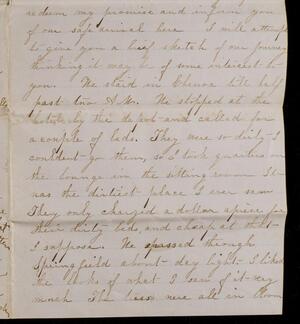 redeem my promise and inform you
of our safe arrival here I will attempt
to give you a brief sketch of our journey
thinking it may be of some interest to
you. We staid in Chenoa till half
past two A.M. We stopped at the
hotel by the depot and called for
a couple of beds. They were so dirty I
couldent go them, so I took quarters on
the lounge in the sitting room It
was the dirtiest place I ever saw
They only charged a dollar apiece for
their dirty beds, and cheap at that
I suppose. We passed through
Springfield about day light I liked
the looks of what I saw of it very
much The trees were all in bloom